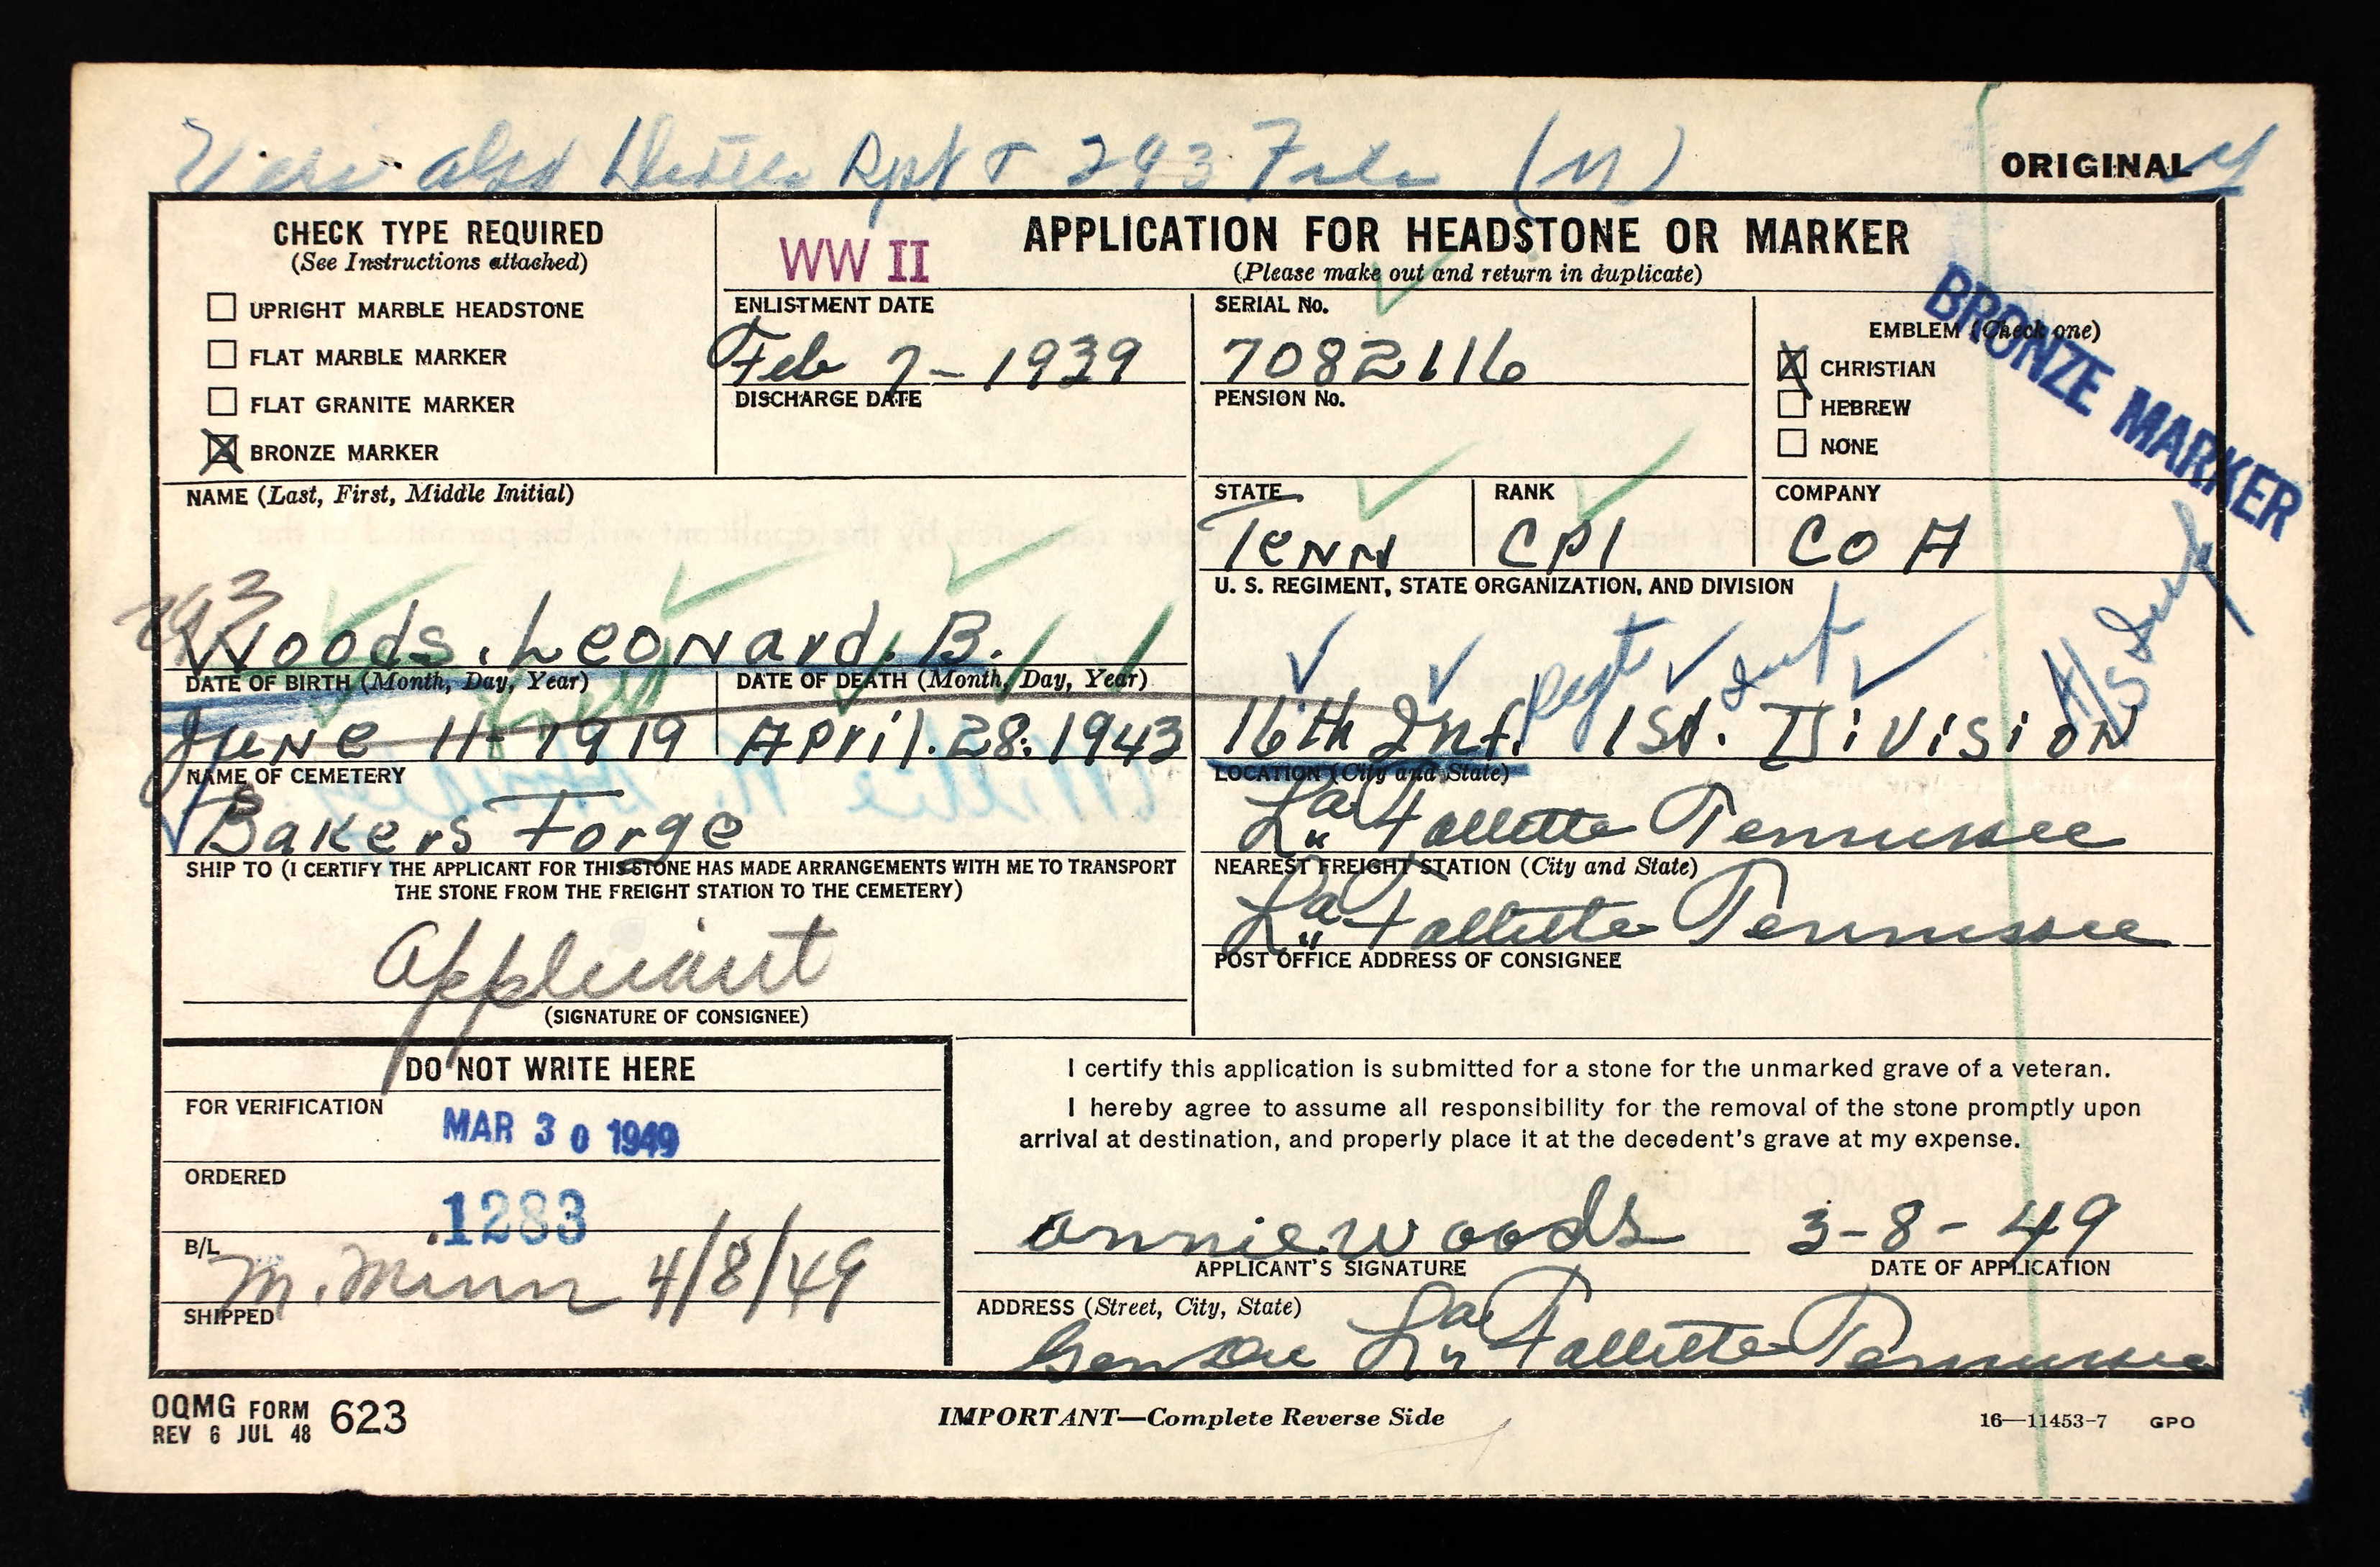 Veri also Death Rpt & 293 File (M)
ORIGINAL
CHECK TYPE REQUIRED
(See Instructions attached)
UPRIGHT MARBLE HEADSTONE
FLAT MARBLE MARKER
FLAT GRANITE MARKER
BRONZE MARKER
WW II
APPLICATION FOR HEADSTONE OR MARKER
(Please make out and return in duplicate)
ENLISTMENT DATE
Feb 7-1939
DISCHARGE DATE
SERIAL No.
7082116
PENSION No.
EMBLEM (Check one)
CHRISTIAN
HEBREW
NONE
BRONZE MARKER
NAME (Last, First, Middle Initial)
293
Woods. Leonard. B.
STATE
Tenn
RANK
CPl
COMPANY
CO A
U. S. REGIMENT, STATE ORGANIZATION, AND DIVISION
16th Inf. Regt 1st. Inf Division
DATE OF BIRTH (Month, Day, Year)
June 11-1919
DATE OF DEATH (Month, Day, Year)
April.28.1943
NAME OF CEMETERY
Bakers Forge
LOCATION (City and State)
La Follette Tennessee
SHIP TO (I CERTIFY THE APPLICANT FOR THIS STONE HAS MADE ARRANGEMENTS WITH ME TO TRANSPORT
THE STONE FROM THE FREIGHT STATION TO THE CEMETERY)
Applicant
(SIGNATURE OF CONSIGNEE)
NEAREST FREIGHT STATION (City and State)
La Follette Tennessee
POST OFFICE ADDRESS OF CONSIGNEE
DO NOT WRITE HERE
FOR VERIFICATION
MAR 30 1949
ORDERED
1283
B/L
M. Minn 4/8/49
SHIPPED
I certify this application is submitted for a stone for the unmarked grave of a veteran.
I hereby agree to assume all responsibility for the removal of the stone promptly upon
arrival at destination, and properly place it at the decedent's grave at my expense.
Annie Woods 3-8-49
APPLICANT'S SIGNATURE
DATE OF APPLICATION
ADDRESS (Street, City, State)
Gen Del La Follette Tennessee
OQMG FORM 623
REV 6 JUL 48
IMPORTANT—Complete Reverse Side
16—11453-7 GPO